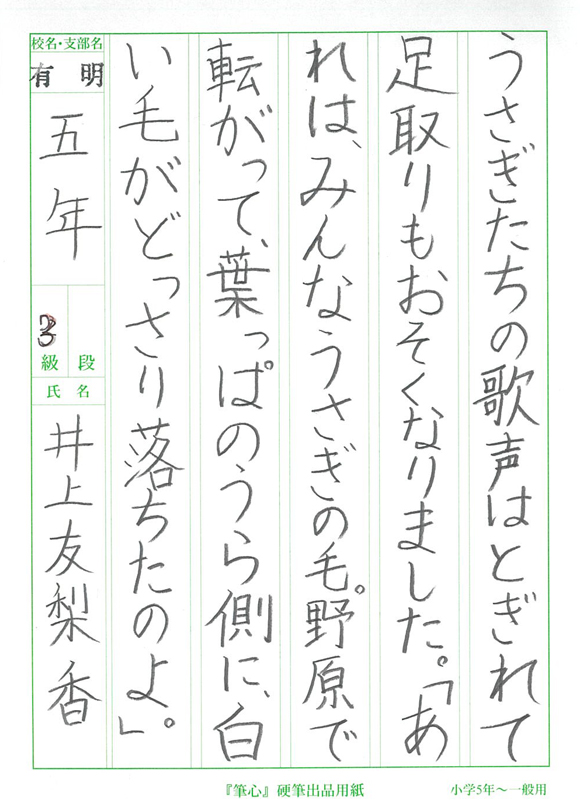 うさぎたちの歌声はとぎれて
足取りもおそくなりました。「あ
れは、みんなうさぎの毛。野原で
転がって、葉っぱのうら側に、白
い毛がどっさり落ちたのよ」。
校名・支部名
有明
五年
3
級 段
氏名
井上友梨香
『筆心』硬筆出品用紙
小学5年〜一般用